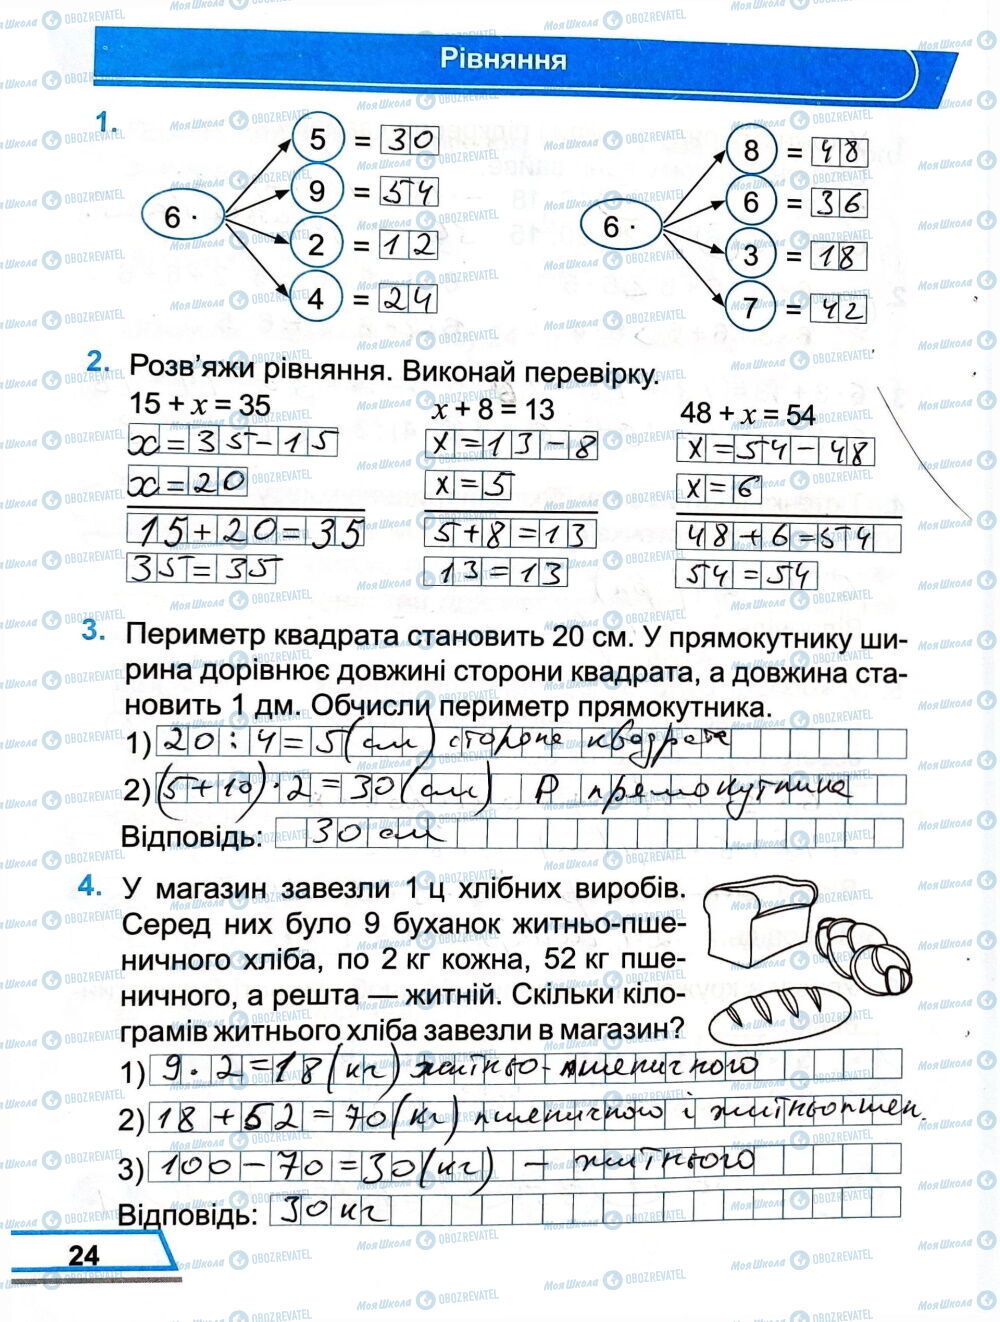 Рівняння
1.
6 ·
5 = 30
9 = 54
2 = 12
4 = 24
6 ·
8 = 48
6 = 36
3 = 18
7 = 42
2. Розв'яжи рівняння. Виконай перевірку.
15 + x = 35
x=35-15
x=20
15+20=35
35=35
x + 8 = 13
x=13-8
x=5
5+8=13
13=13
48 + x = 54
x=54-48
x=6
48+6=54
54=54
3. Периметр квадрата становить 20 см. У прямокутнику ши-
рина дорівнює довжині сторони квадрата, а довжина ста-
новить 1 дм. Обчисли периметр прямокутника.
1) 20:4=5(см) сторона квадрата
2) (5+10)·2=30(см) P прямокутника
Відповідь: 30 см
4. У магазин завезли 1 ц хлібних виробів.
Серед них було 9 буханок житньо-пше-
ничного хліба, по 2 кг кожна, 52 кг пше-
ничного, а решта — житній. Скільки кіло-
грамів житнього хліба завезли в магазин?
1) 9·2=18(кг) житньо-пшеничного
2) 18+52=70(кг) пшеничного і житньопшен.
3) 100-70=30(кг) - житнього
Відповідь: 30 кг
24
МояШкола OBOZREVATEL